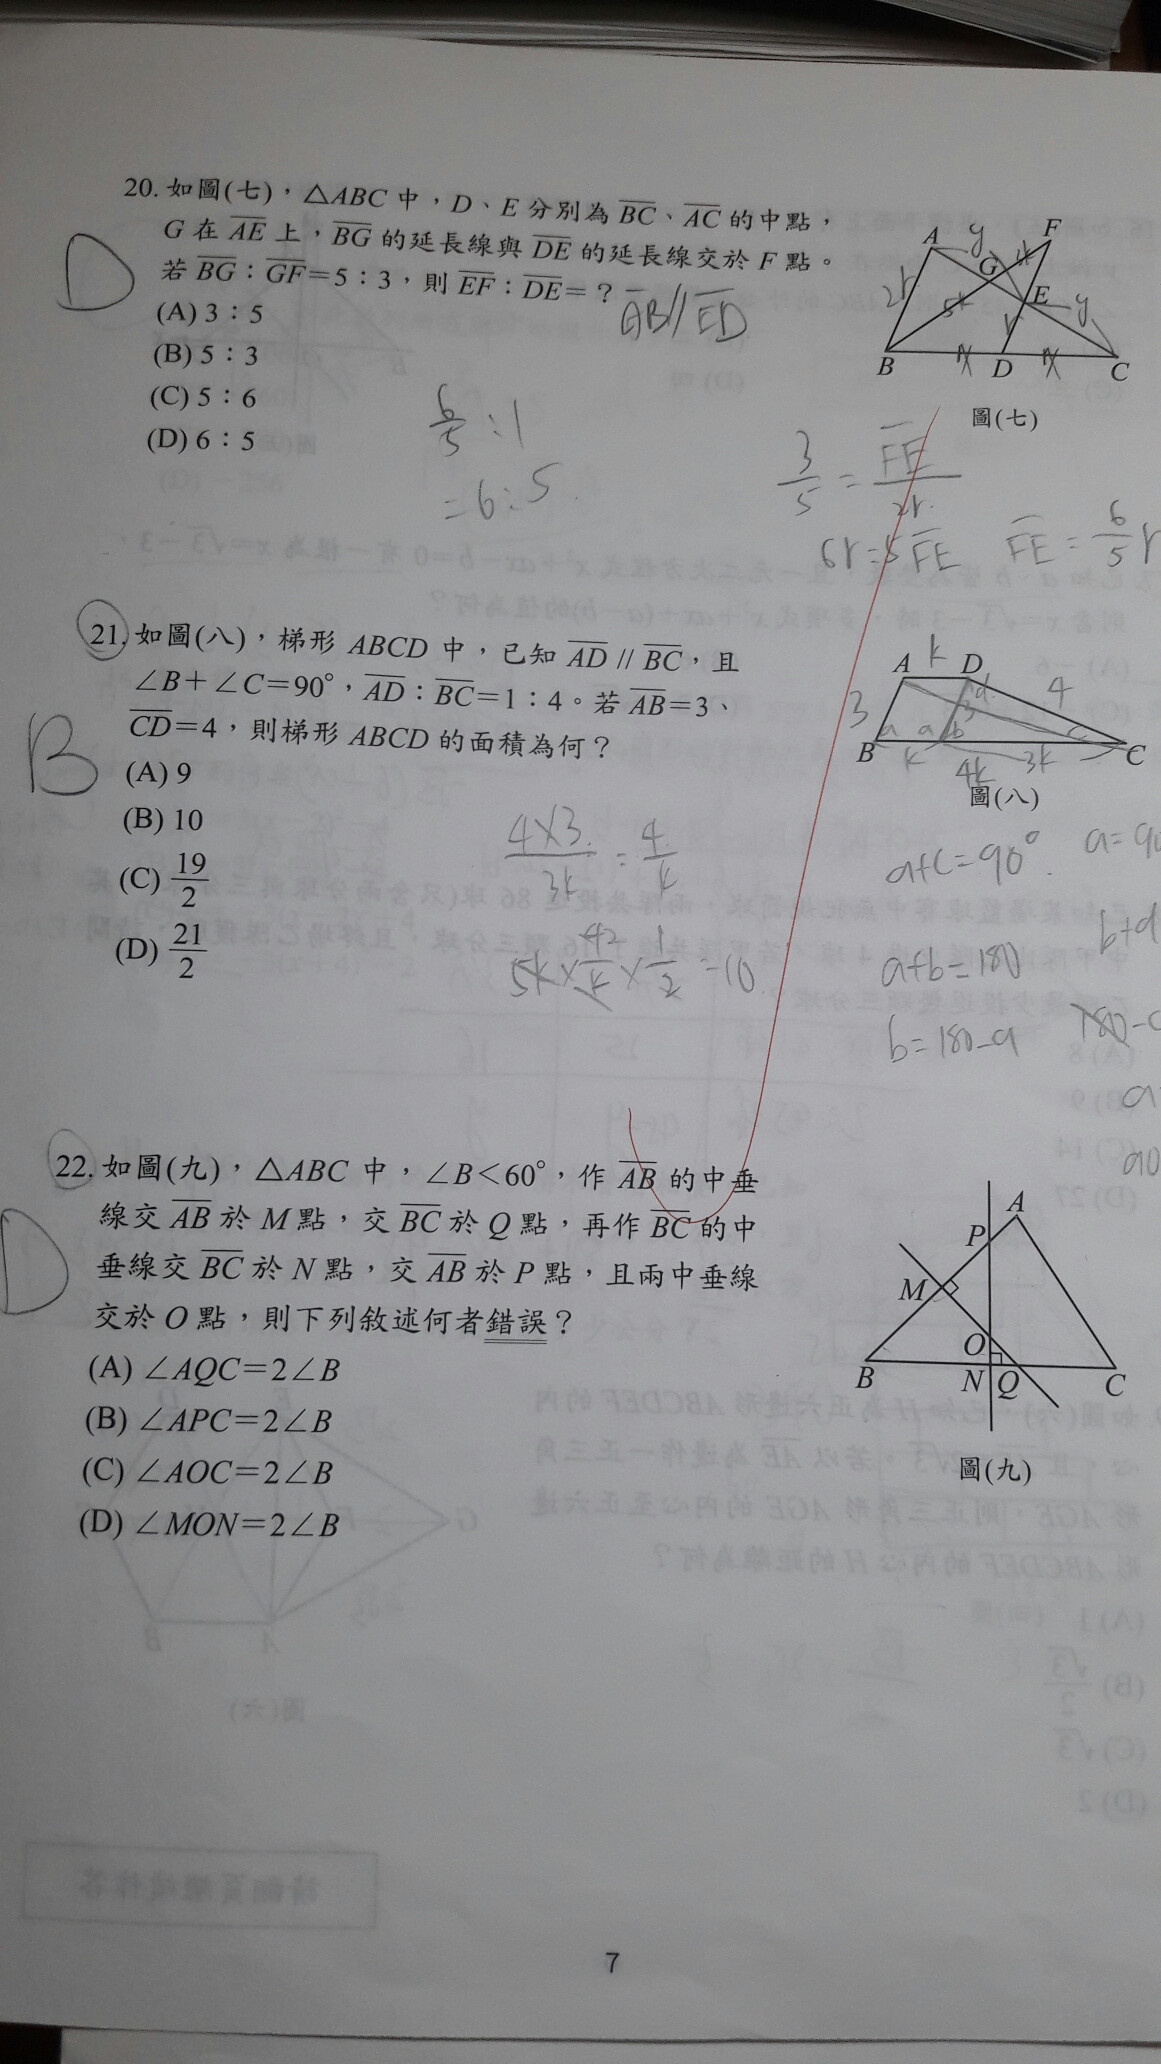 20. 如圖(七),△ABC 中,D、E 分別為 BC、AC 的中點,
G 在 AE 上,BG 的延長線與 DE 的延長線交於 F 點。
若 BG:GF=5:3,則 EF:DE=?
AB//ED
(A) 3:5
(B) 5:3
(C) 5:6
(D) 6:5
D
6/5 : 1
=6:5
A y F
G
2r 5k E y
r
B D C
圖(七)
3/5 = FE/2r
6r=5FE FE=6/5 r
21. 如圖(八),梯形 ABCD 中,已知 AD // BC,且
∠B+∠C=90°,AD:BC=1:4。若 AB=3、
CD=4,則梯形 ABCD 的面積為何?
(A) 9
(B) 10
(C) 19/2
(D) 21/2
B
A k D
3 a a b 3 d 4 c
B k 3k C
4k
圖(八)
4×3/3k = 4/k
5k× 4/k × 1/2 =10
a+c=90°
a+b=180
b=180-a
22. 如圖(九),△ABC 中,∠B<60°,作 AB 的中垂
線交 AB 於 M 點,交 BC 於 Q 點,再作 BC 的中
垂線交 BC 於 N 點,交 AB 於 P 點,且兩中垂線
交於 O 點,則下列敘述何者錯誤?
(A) ∠AQC=2∠B
(B) ∠APC=2∠B
(C) ∠AOC=2∠B
(D) ∠MON=2∠B
D
A
P
M
O
B N Q C
圖(九)
7